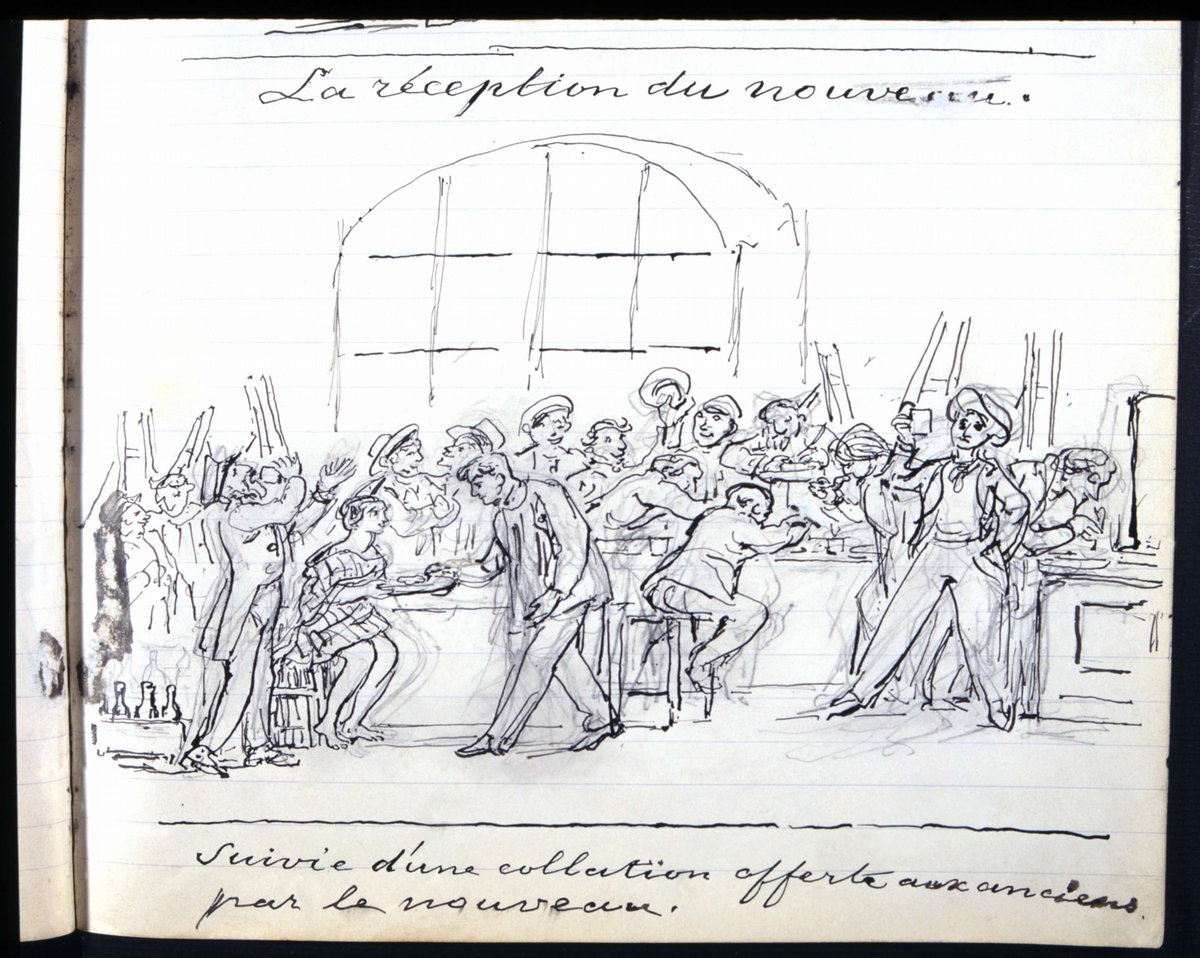 La réception du nouveau.
Suivie d'une collation offerte aux anciens
par le nouveau.